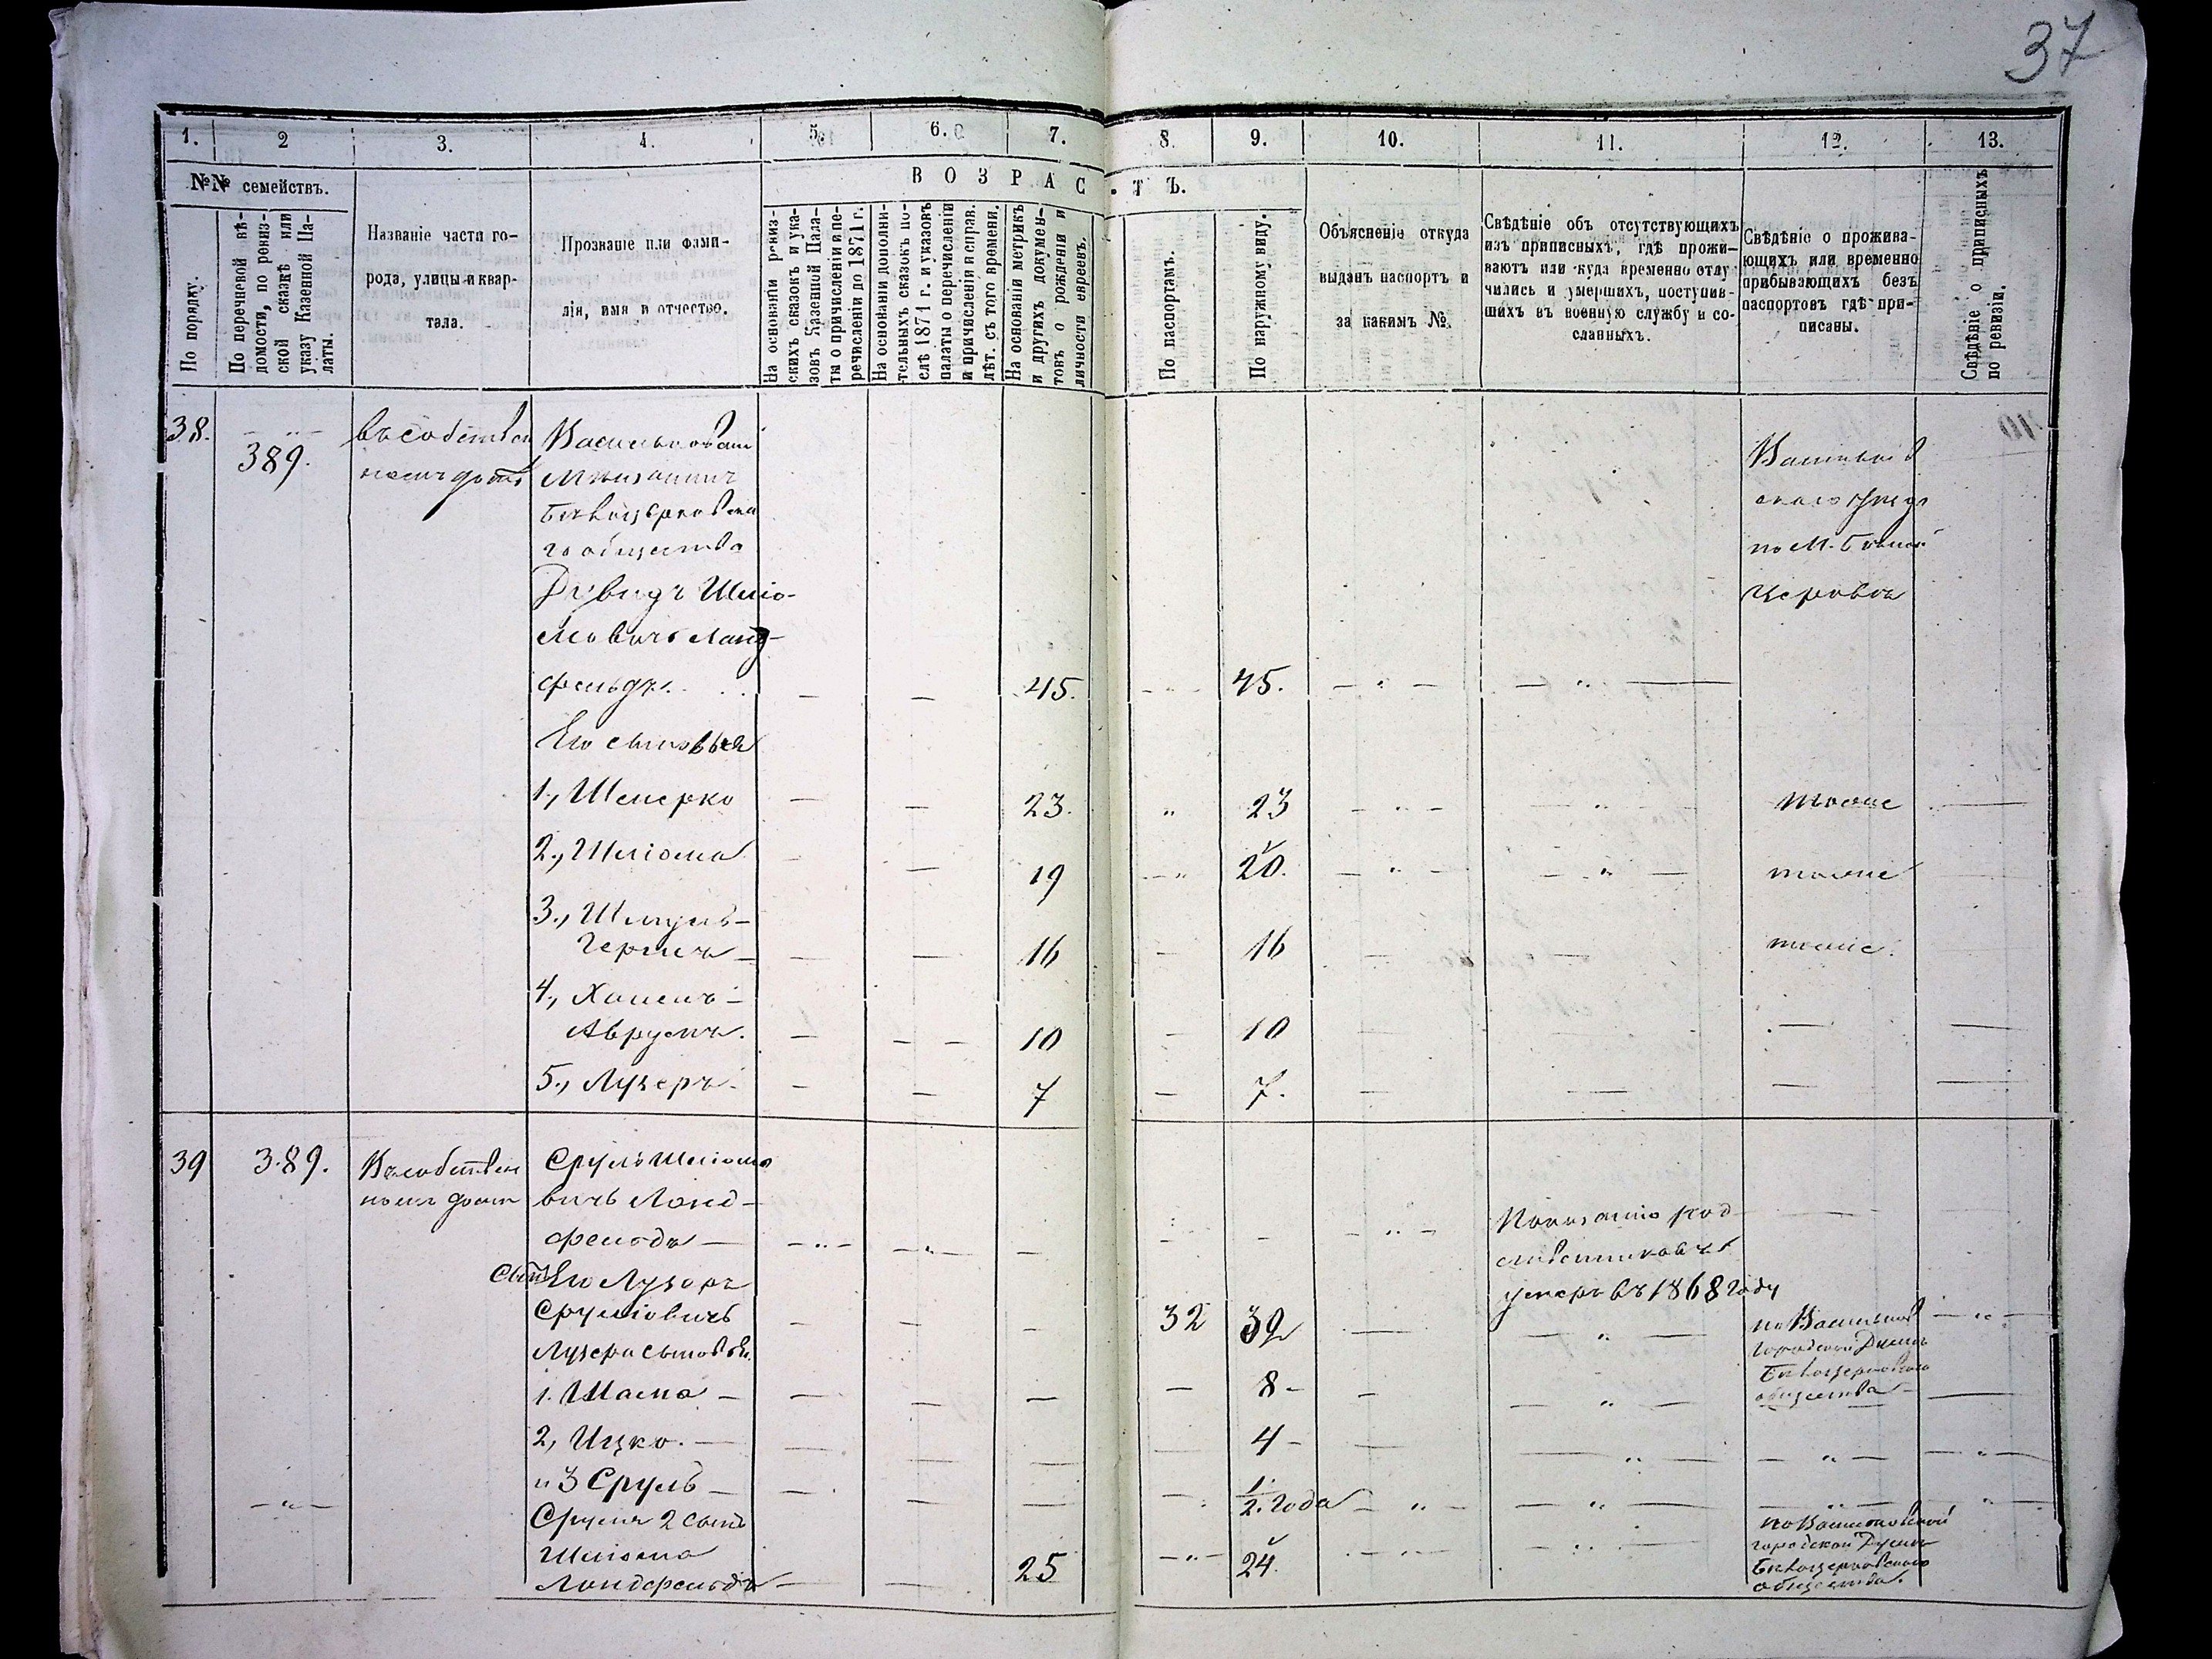 37
1. 2 3. 4. 5. 6. 7. 8. 9. 10. 11. 12. 13.
№№ семействъ.
ВОЗРАСТЪ.
По порядку.
По перечневой вѣ-
домости, по ревиз-
ской сказкѣ или
указу Казенной Па-
латы.
Названіе части го-
рода, улицы и квар-
тала.
Прозваніе или фами-
лія, имя и отчество.
На основаніи ревиз-
скихъ сказокъ и ука-
зовъ Казенной Пала-
ты о причисленіи и пе-
речисленіи до 1871 г.
На основаніи дополни-
тельныхъ сказокъ по-
слѣ 1871 г. и указовъ
палаты о перечисленіи
и причисленіи и справ.
лѣт. съ того времени.
На основаніи метрикъ
и другихъ докумен-
товъ о рожденіи и
личности евреевъ.
По паспортамъ.
По наружному виду.
Объясненіе откуда
выданъ паспортъ и
за какимъ №.
Свѣдѣніе объ отсутствующихъ
изъ приписныхъ, гдѣ прожи-
ваютъ или куда временно отлу-
чились и умершихъ, поступив-
шихъ въ военную службу и со-
сланныхъ.
Свѣдѣніе о прожива-
ющихъ или временно
прибывающихъ безъ
паспортовъ гдѣ при-
писаны.
Свѣдѣніе о приписныхъ
по ревизіи.
38.
389.
въ собствен
номъ домѣ
Мѣщанинъ
Бѣлоцерковска
го общества
Давидъ Шліо-
мовичъ Ланд-
фельдъ. — — 45. 45.
уѣзда
по М. Бѣлой
Церквѣ
Его сыновья
1., Шмерко — — 23. 23 тоже
2., Шліома — — 19 20. тоже
3., Шмуль-
Гершъ — — 16 16 тоже
4., Хаимъ-
Аврумъ. — — 10 10
5., Лузеръ — — 7 7.
39 389. Въ собствен
номъ домѣ
Сруль Шліомо
вичъ Ланд-
фельдъ
умеръ въ 1868 году
Сынъ Его Лузеръ
Срулiовичъ — — — 32 32
Лузера сыновья
городской Думѣ
Бѣлоцерковскаго
общества
1. — — — — 8 —
2, Ицко. — 4 —
и 3 Сруль — 1/2. года
Сруля 2 сынъ
Шліома
Ландфельдъ — — 25 24.
по Васильковской
городской Думѣ
Бѣлоцерковскаго
общества.